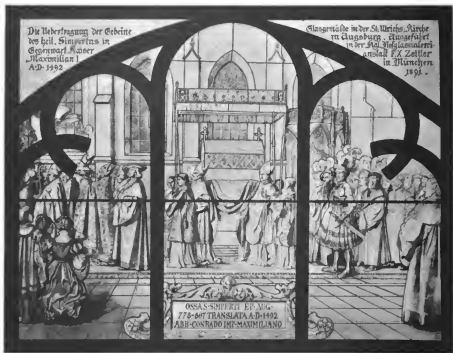 Die Uebertragung der Gebeine
des heil. Simpertus in
Gegenwart Kaiser
Maximilian I
A·D· 1492
Glasgemälde in der St. Ulrichs-Kirche
in Augsburg. Ausgeführt
in der Kgl. Hofglasmalerei
anstalt F.X. Zettler
in München
1891.
OSSA S· SIMPERTI EP· AUG·
778-807 TRANSLATA A·D·1492
ABB·CONRADO IMP·MAXIMILIANO